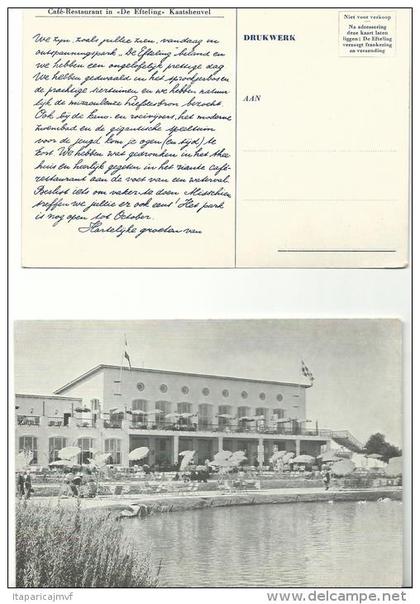 Café-Restaurant in «De Efteling» Kaatsheuvel
We zijn, zoals jullie zien, vandaag in
ontspanningspark "De Efteling" beland en
we hebben een ongelofelijk prettige dag
We hebben gedwaald in het sprookjesbos en
de prachtige siertuinen en we hebben natuur
lijk de miraculeuze Liefdesbron bezocht.
Ook bij de kano- en roeivijvers, het moderne
zwembad en de gigantische speeltuin
voor de jeugd kom je ogen (en tijd) te
kort. We hebben wat gedronken in het thee
huis en heerlijk gegeten in het riante Café-
restaurant aan de voet van een waterval.
Beslist iets om vaker te doen. Misschien
treffen we jullie er ook eens! Het park
is nog open tot October.
Hartelijke groeten van
DRUKWERK
AAN
Niet voor verkoop
Na adressering
deze kaart laten
liggen; De Efteling
verzorgt frankering
en verzending
Itaparicajmvf
© delcampe.net